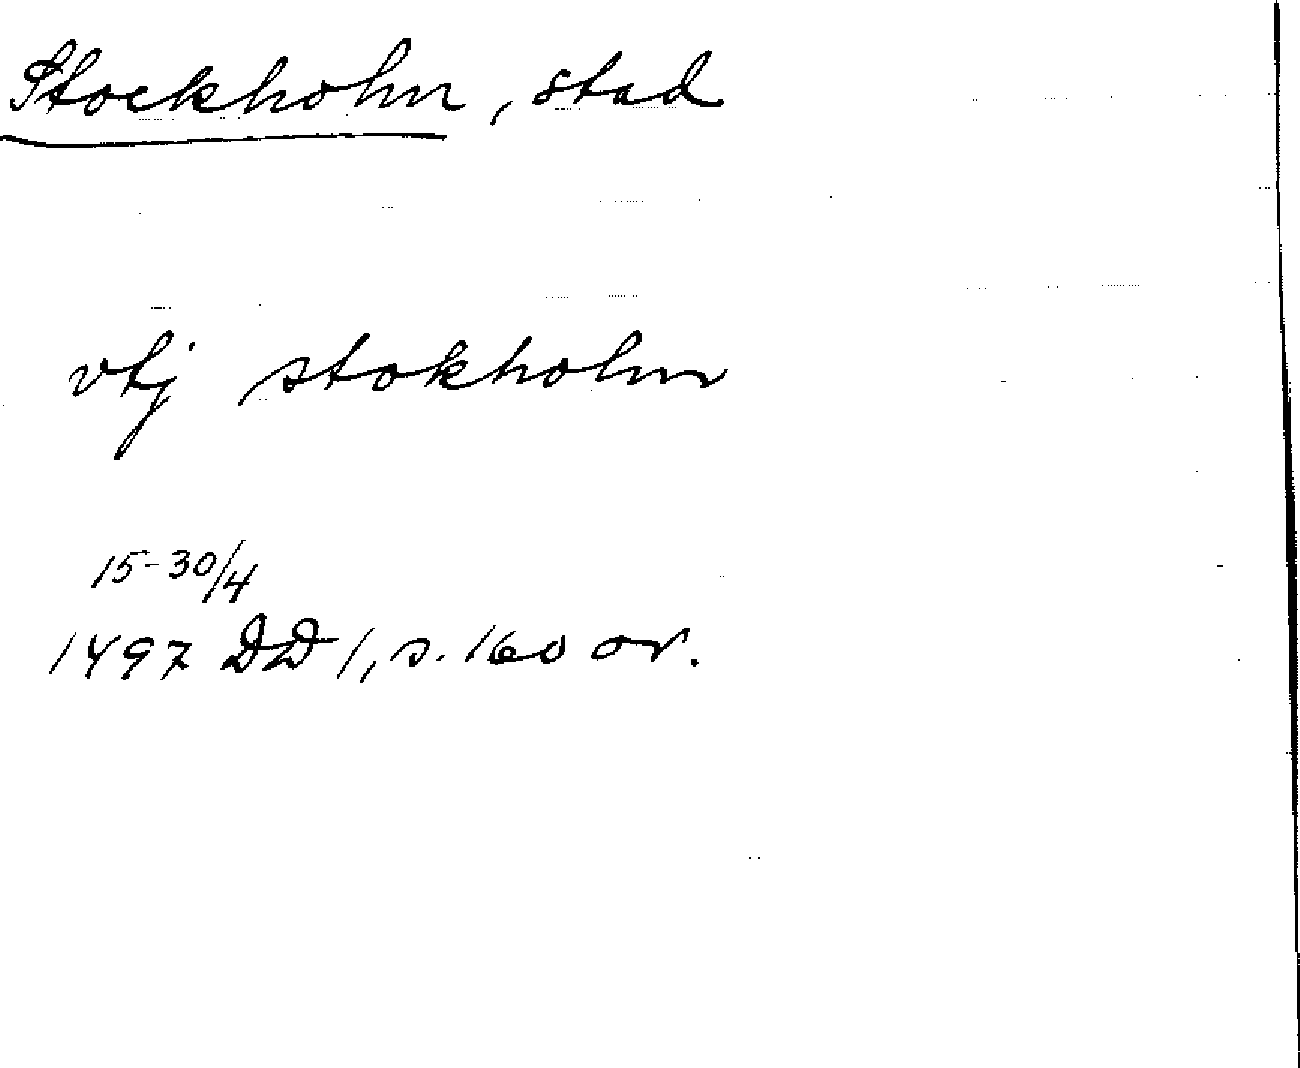 Stockholm, stad
vtj stokholm
15-30/4
1497 DD 1, s. 160 or.